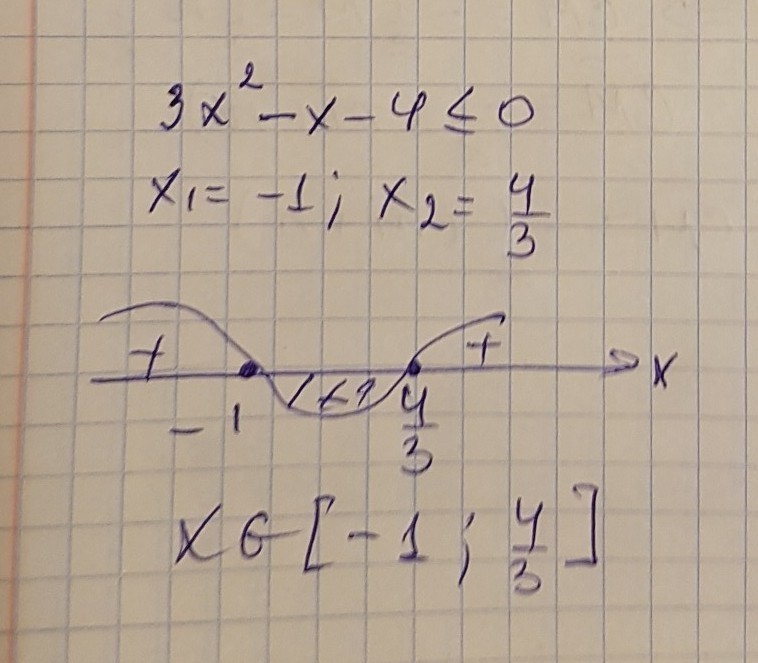 3x² - x - 4 ≤ 0
x₁ = -1; x₂ = 4/3
+ +
-1 4/3 x
x ∈ [-1; 4/3]